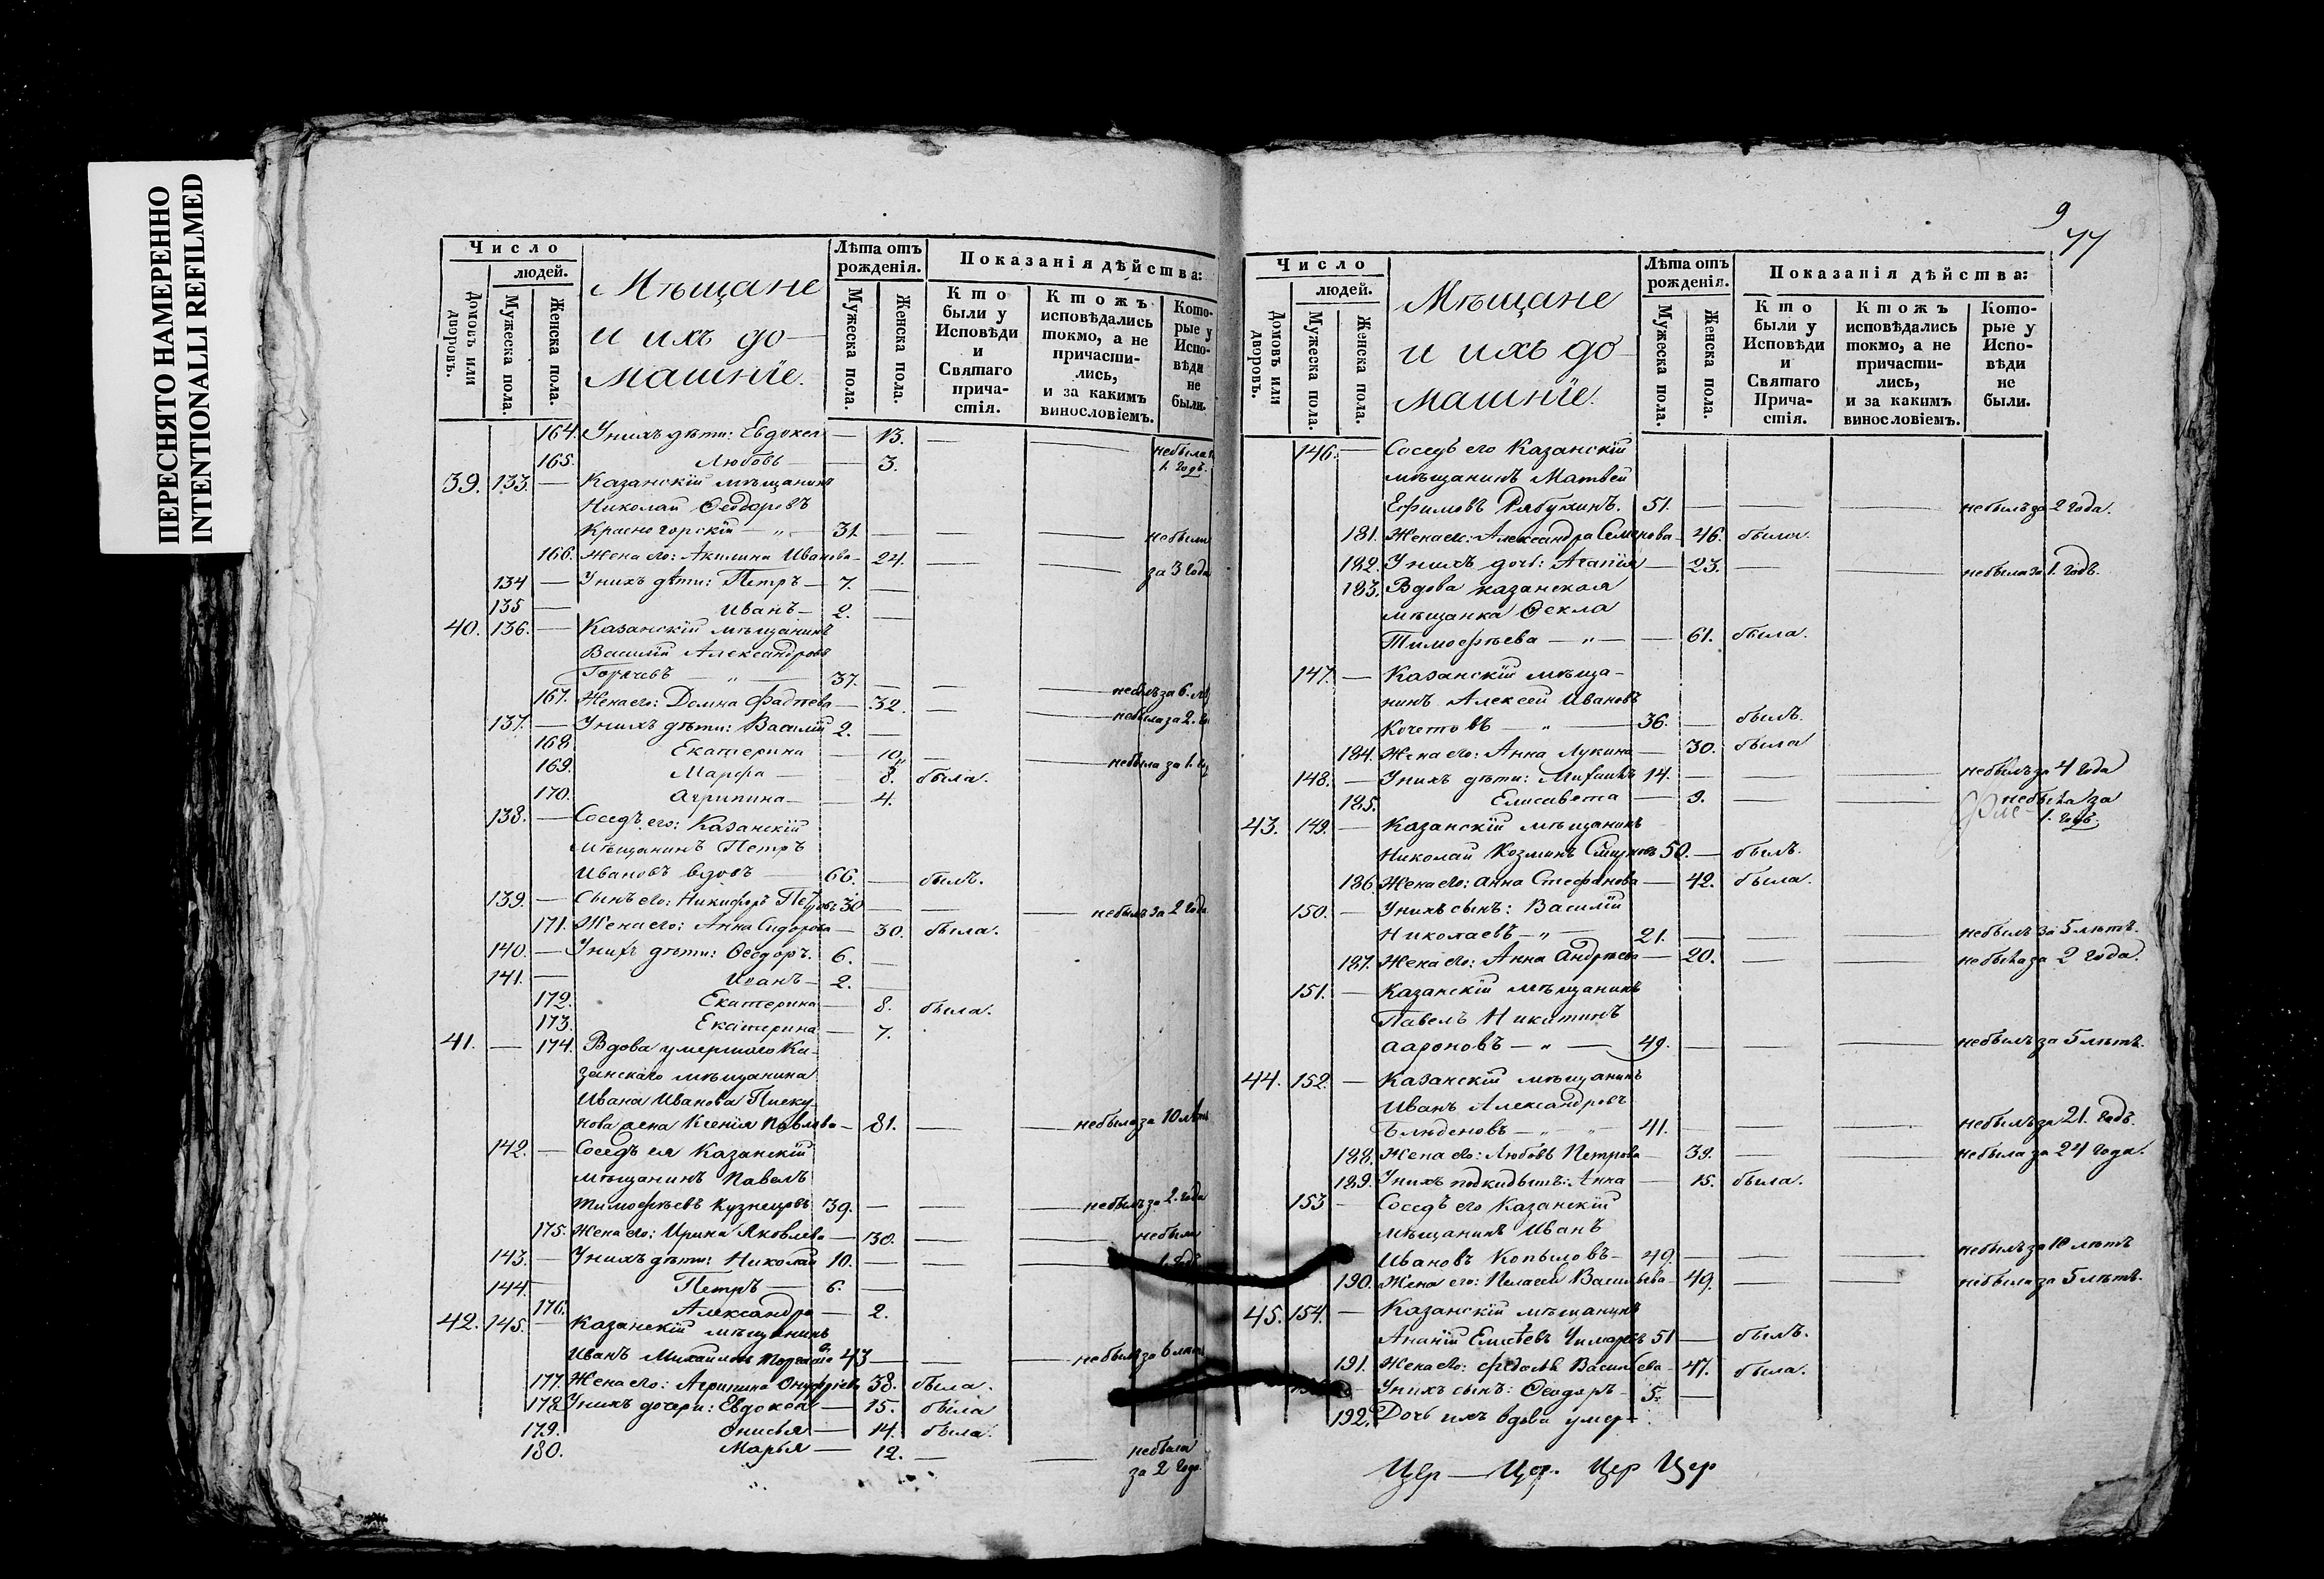 ПЕРЕСНЯТО НАМЕРЕННО
INTENTIONALLI REFILMED
Число
людей.
Домовъ или дворовъ.
Мужеска пола.
Женска пола.
Мѣщане
и ихъ до-
машніе.
Лѣта отъ рожденія.
Мужеска пола.
Женска пола.
Показанія дѣйства:
Кто были у Исповѣди и Святаго прича-стія.
Ктожъ исповѣдались токмо, а не причасти-лись, и за какимъ винословіемъ.
Кото-рые у Испо-вѣди не были.
164. У нихъ дѣти: Евдокея — 13. — — небыла
165. Любовь — 3. 1. годъ.
39. 133. — Казанскій мѣщанинъ
Николай Ѳеодоровъ
Красногорскій — „ — 31. — — — небыли
166. Жена его: Акилина Иванова — 24. — — за 3 года
134 — У нихъ дѣти: Петръ — 7. —
135 — Иванъ — 2. —
40. 136. — Казанскій мѣщанинъ
Василій Александровъ
Горячевъ — „ — 37. — — — небылъ за 6. лѣ
167. Жена его: Домна Фадѣева — 32. — — небыла за 2. го
137. — У нихъ дѣти: Василій 2. —
168 Екатерина — 10. — небыла за 1. го
169. Марфа — 8. была.
170. Агрипина — 4.
138. — Соседъ его: Казанскій
мѣщанинъ Петръ
Ивановъ вдовъ — 66. — былъ.
139. — Сынъ его: Никифоръ Петровъ 30 — — — небылъ за 2 года
171. Жена его: Анна Сидорова — 30. была.
140. — У нихъ дѣти: Ѳеодоръ. 6. —
141. — Иванъ — 2. —
172. Екатерина — 8. была.
173. Екатерина — 7.
41. — 174. Вдова умершаго Ка-
занскаго мѣщанина
Ивана Иванова Писку-
нова жена Ксенія Павлова — 81. — — небыла за 10 лѣтъ
142. — Соседъ ея Казанскій
мѣщанинъ Павелъ
Тимофѣевъ Кузнецовъ 39. — — — небылъ за 2. года
175. Жена его: Ирина Яковлева — 30. — — небыли
143. — У нихъ дѣти: Николай 10. — — — 1. годъ
144. — Петръ — 6. —
176. Александра — 2.
42. 145. — Казанскій мѣщанинъ
Иванъ Михайловъ 43 — — — небылъ за 6 лѣтъ
177. Жена его: Агрипина Онуфріева 38. была.
178 У нихъ дочери: Евдокея — 15. была
179. Онисья — 14. была.
180. Марья — 12. — — небыла
за 2 года
9
77
Число
людей.
Домовъ или дворовъ.
Мужеска пола.
Женска пола.
Мѣщане
и ихъ до-
машніе.
Лѣта отъ рожденія.
Мужеска пола.
Женска пола.
Показанія дѣйства:
Кто были у Исповѣди и Святаго Прича-стія.
Ктожъ исповѣдались токмо, а не причасти-лись, и за какимъ винословіемъ.
Кото-рые у Испо-вѣди не были.
146. — Соседъ его Казанскій
мѣщанинъ Матвей
Ефимовъ Рябухинъ. 51. — — — небылъ за 2 года.
181. Жена ег: Александра Семенова — 46. была.
182. У нихъ дочь: Агапія — 23. — — небыла за 1. годъ.
183. Вдова казанская
мѣщанка Ѳекла
Тимофѣева — „ — — 61. была.
147. — Казанскій мѣща-
нинъ Алексей Ивановъ
Кочетовъ — „ — 36. — былъ.
184. Жена его: Анна Лукина — 30. была
148. — У нихъ дѣти: Михаилъ 14. — — — небылъ за 4 года
185. Елисавета — 9. — — небыла за
1. годъ.
43. 149. — Казанскій мѣщанинъ
Николай Козминъ Смирновъ 50. — былъ.
186. Жена его: Анна Стефанова — 42. была.
150. — У нихъ сынъ: Василій
Николаевъ — „ — 21. — — — небылъ за 5 лѣтъ.
187. Жена его: Анна Андрѣева — 20. — — небыла за 2 года.
151. — Казанскій мѣщанинъ
Павелъ Никитинъ
Аароновъ — „ — 49. — — — небылъ за 5 лѣтъ.
44. 152. — Казанскій мѣщанинъ
Иванъ Александровъ
Блюденовъ — „ — 41. — — — небылъ за 21. годъ.
188. Жена его: Любовь Петрова — 39. — — небыла за 24 года.
189. У нихъ подкидышъ: Анна — 15. была.
153 — Соседъ его Казанскій
мѣщанинъ Иванъ
Ивановъ Копыловъ — 49. — — — небылъ за 10 лѣтъ
190. Жена его: Пелагея Васильева — 49. — — небыла за 5 лѣтъ.
45. 154. — Казанскій мѣщанинъ
Ананій Елисѣевъ 51 — былъ.
191. Жена его: Васильева — 47. была.
— У нихъ сынъ: Ѳеодоръ — 5. —
192. Дочь ихъ вдова умер-
Цер — Цер. Цер Цер